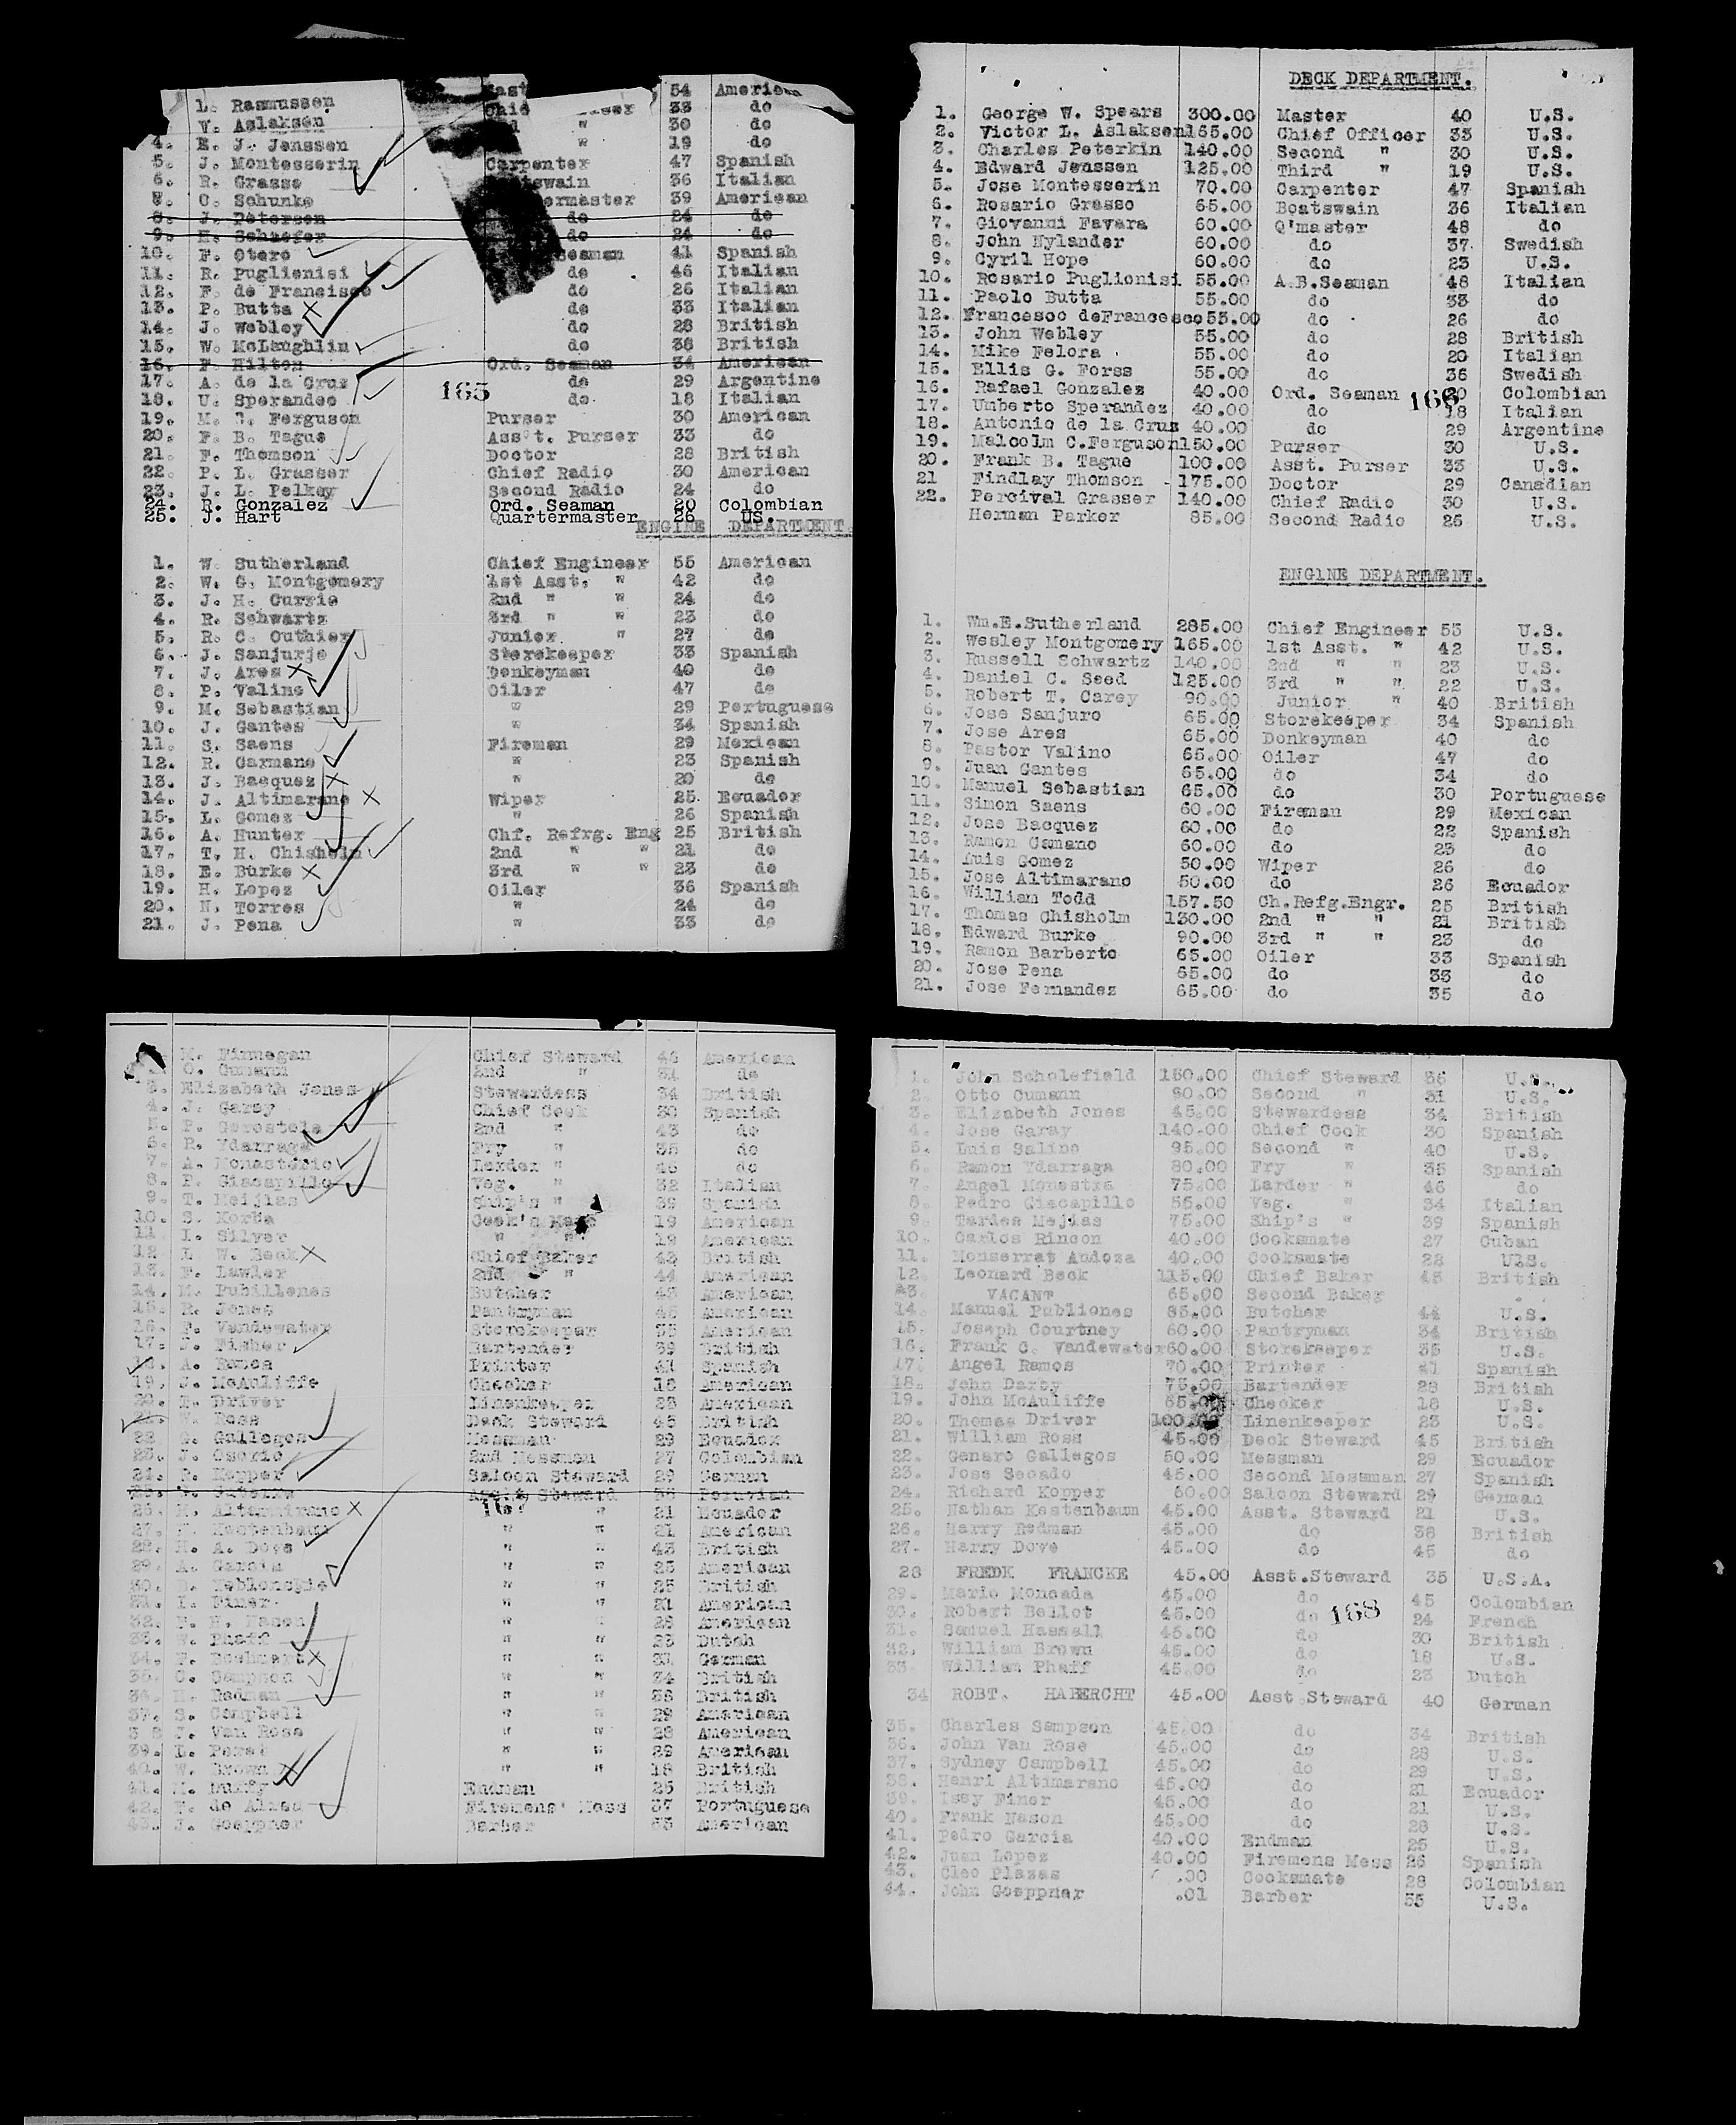 L. Rasmussen 54 American
V. Aslaksen 33 do
" 30 do
4. E. J. Jenssen " 19 do
5. J. Montesserin Carpenter 47 Spanish
6. R. Grasso 36 Italian
7. O. Schunke 39 American
8. J. Petersen do 24 do
9. H. Schiefer do 24 do
10. F. Otero Seaman 41 Spanish
11. R. Puglienisi do 46 Italian
12. F. de Francisco do 26 Italian
13. P. Butta do 33 Italian
14. J. Webley do 28 British
15. W. McLaughlin do 38 British
16. F. Hilton Ord. Seaman 34 American
17. A. de la Cruz do 29 Argentine
165
18. U. Sperandeo do 18 Italian
19. M. C. Ferguson Purser 30 American
20. F. B. Tague Ass't. Purser 33 do
21. F. Thomson Doctor 28 British
22. P. L. Grasser Chief Radio 30 American
23. J. L. Pelkey Second Radio 24 do
24. R. Gonzalez Ord. Seaman 20 Colombian
25. J. Hart Quartermaster 26 US.
ENGINE DEPARTMENT.
1. W. Sutherland Chief Engineer 55 American
2. W. G. Montgomery 1st Asst. " 42 do
3. J. H. Currie 2nd " " 24 do
4. R. Schwartz 3rd " " 23 do
5. R. C. Outhier Junior " 27 do
6. J. Sanjurjo Storekeeper 33 Spanish
7. J. Ares Donkeyman 40 do
8. P. Valino Oiler 47 do
9. M. Sebastian " 29 Portuguese
10. J. Gantes " 34 Spanish
11. S. Saens Fireman 29 Mexican
12. R. Carmano " 23 Spanish
13. J. Bacquez " 20 do
14. J. Altimarano Wiper 25 Ecuador
15. L. Gomez " 26 Spanish
16. A. Hunter Chf. Refrg. Eng 25 British
17. T. H. Chisholm 2nd " " 21 do
18. E. Burke 3rd " " 23 do
19. H. Lopez Oiler 36 Spanish
20. N. Torres " 24 do
21. J. Pena " 33 do
DECK DEPARTMENT.
1. George W. Spears 300.00 Master 40 U.S.
2. Victor L. Aslaksen 165.00 Chief Officer 33 U.S.
3. Charles Peterkin 140.00 Second " 30 U.S.
4. Edward Jenssen 125.00 Third " 19 U.S.
5. Jose Montesserin 70.00 Carpenter 47 Spanish
6. Rosario Grasso 65.00 Boatswain 36 Italian
7. Giovanni Favara 60.00 Q'master 48 do
8. John Nylander 60.00 do 37 Swedish
9. Cyril Hope 60.00 do 23 U.S.
10. Rosario Puglionisi 55.00 A.B.Seaman 48 Italian
11. Paolo Butta 55.00 do 33 do
12. Francesoc deFrancesco 55.00 do 26 do
13. John Webley 55.00 do 28 British
14. Mike Felora 55.00 do 20 Italian
15. Ellis G. Forss 55.00 do 36 Swedish
16. Rafael Gonzales 40.00 Ord. Seaman 20 Colombian
166
17. Umberto Sperandez 40.00 do 18 Italian
18. Antonio de la Cruz 40.00 do 29 Argentine
19. Malcolm C.Ferguson 150.00 Purser 30 U.S.
20. Frank B. Tague 100.00 Asst. Purser 33 U.S.
21 Findlay Thomson 175.00 Doctor 29 Canadian
22. Percival Grasser 140.00 Chief Radio 30 U.S.
Herman Parker 85.00 Second Radio 26 U.S.
ENGINE DEPARTMENT.
1. Wm.E.Sutherland 285.00 Chief Engineer 53 U.S.
2. Wesley Montgomery 165.00 1st Asst. " 42 U.S.
3. Russell Schwartz 140.00 2nd " " 23 U.S.
4. Daniel C. Seed 125.00 3rd " " 22 U.S.
5. Robert T. Carey 90.00 Junior " 40 British
6. Jose Sanjuro 65.00 Storekeeper 34 Spanish
7. Jose Ares 65.00 Donkeyman 40 do
8. Pastor Valino 65.00 Oiler 47 do
9. Juan Gantes 65.00 do 34 do
10. Manuel Sebastian 65.00 do 30 Portuguese
11. Simon Saens 60.00 Fireman 29 Mexican
12. Jose Bacquez 60.00 do 22 Spanish
13. Ramon Camano 60.00 do 23 do
14. Luis Gomez 50.00 Wiper 26 do
15. Jose Altimarano 50.00 do 26 Ecuador
16. William Todd 157.50 Ch.Refg.Engr. 25 British
17. Thomas Chisholm 130.00 2nd " " 21 British
18. Edward Burke 90.00 3rd " " 23 do
19. Ramon Barberto 65.00 Oiler 33 Spanish
20. Jose Pena 65.00 do 33 do
21. Jose Fernandez 65.00 do 35 do
M. Finnegan Chief Steward 46 American
O. Cumann 2nd " 31 do
3. Elizabeth Jones Stewardess 34 British
4. J. Garay Chief Cook 30 Spanish
5. P. Gorostola 2nd " 43 do
6. R. Ydarraga Fry " 35 do
7. A. Monasterio Larder " 46 do
8. P. Giacapillo Veg. " 32 Italian
9. T. Meijias Ship's " 39 Spanish
10. S. Korba Cook's Mate 19 American
11. I. Silver " " 19 American
12. L. W. Beck Chief Baker 42 British
13. F. Lawler 2nd " 44 American
14. M. Pubillones Butcher 43 American
15. R. Jones Pantryman 46 American
16. F. Vandewater Storekeeper 35 American
17. J. Fisher Bartender 39 British
18. A. Ramos Printer 41 Spanish
19. J. McAuliffe Checker 18 American
20. T. Driver Linenkeeper 23 American
21. W. Ross Deck Steward 45 British
22. G. Gallegos Messman 29 Ecuador
23. J. Osorio 2nd Messman 27 Colombian
24. R. Kopper Saloon Steward 29 German
25. Ass't Steward 36 Peruvian
167
26. H. Altamirano " " 21 Ecuador
27. N. Kestenbaum " " 21 American
28. H. A. Dove " " 43 British
29. A. Garcia " " 23 American
30. " " 25 British
31. I. Finer " " 21 American
32. F. H. Nason " " 28 American
33. W. Phaff " " 23 Dutch
34. " " German
35. C. Sampson " " 34 British
36. H. Redman " " 38 British
37. S. Campbell " " 29 American
38 J. Van Rose " " 28 American
39. L. Perel " " 29 American
40. W. Brown " " 18 British
41. M. Duffy Endman 25 British
42. de Almea Firemens' Mess 37 Portuguese
43. J. Goeppner Barber 55 American
1. John Scholefield 150.00 Chief Steward 36 U.S.
2. Otto Cumann 90.00 Second " 31 U.S.
3. Elizabeth Jones 45.00 Stewardess 34 British
4. Jose Garay 140.00 Chief Cook 30 Spanish
5. Luis Salino 95.00 Second " 40 U.S.
6. Ramon Ydarraga 80.00 Fry " 35 Spanish
7. Angel Monestra 75.00 Larder " 46 do
8. Pedro Giacapillo 55.00 Veg. " 34 Italian
9. Tardea Mejias 75.00 Ship's " 39 Spanish
10. Carlos Rincon 40.00 Cooksmate 27 Cuban
11. Monserrat Andoza 40.00 Cooksmate 28 UlS.
12. Leonard Beck 115.00 Chief Baker 43 British
13. VACANT 65.00 Second Baker
14. Manuel Publiones 85.00 Butcher 44 U.S.
15. Joseph Courtney 60.00 Pantryman 34 British
16. Frank C. Vandewater 60.00 Storekeeper 35 U.S.
17. Angel Ramos 70.00 Printer 41 Spanish
18. John Darby 75.00 Bartender 28 British
19. John McAuliffe 55.00 Checker 18 U.S.
20. Thomas Driver 100.00 Linenkeeper 23 U.S.
21. William Ross 45.00 Deck Steward 45 British
22. Genaro Gallegos 50.00 Messman 29 Ecuador
23. Jose Secado 45.00 Second Messman 27 Spanish
24. Richard Kopper 50.00 Saloon Steward 29 German
25. Nathan Kestenbaum 45.00 Asst. Steward 21 U.S.
26. Harry Redman 45.00 do 38 British
27. Harry Dove 45.00 do 45 do
28 FREDK FRANCKE 45.00 Asst.Steward 35 U.S.A.
29. Mario Moncada 45.00 do 45 Colombian
30. Robert Bellot 45.00 do 24 French
168
31. Samuel Hassall 45.00 do 30 British
32. William Brown 45.00 do 18 U.S.
33. William Phaff 45.00 do 23 Dutch
34 ROBT. HABERCHT 45.00 Asst.Steward 40 German
35. Charles Sampson 45.00 do 34 British
36. John Van Rose 45.00 do 28 U.S.
37. Sydney Campbell 45.00 do 29 U.S.
38. Henri Altimarano 45.00 do 21 Ecuador
39. Issy Finer 45.00 do 21 U.S.
40. Frank Nason 45.00 do 28 U.S.
41. Pedro Garcia 40.00 Endman 25 U.S.
42. Juan Lopez 40.00 Firemens Mess 26 Spanish
43. Cleo Plazas .00 Cooksmate 28 Colombian
44. John Goeppner .01 Barber 55 U.S.